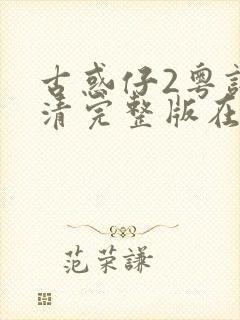 古惑仔2粤語
清完整版在
范荣謙